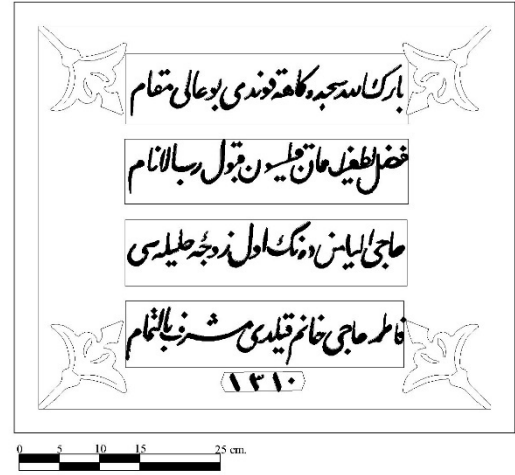 بارك الله سجده كاهه قوندى بو عالى مقام
فضل لطفيله قيلسون قبول رب الانام
حاجى الياس اول زوجۀ حليله سى
فاطمه حاجى خانم قيلدى مشرف بالتمام
١٣١٠
0 5 10 15 25 cm.